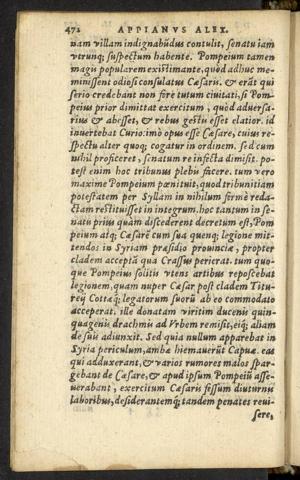 472 APPIANVS ALEX.
nam villam indignabũdus contulit, senatu iam
vtrunq; suspectum habente. Pompeium tamen
magis popularem existimante, quòd adhuc me-
minissent odiosi consulatus Cæsaris. & erãt qui
serio credebant non fore tutum ciuitati, si Pom-
peius prior dimittat exercitum, quòd aduersa-
rius & abesset, & rebus gestis esset elatior. id
inuertebat Curio: imò opus esse Cæsare, cuius re-
spectu alter quoq; cogatur in ordinem. sed cum
nihil proficeret, senatum re infecta dimisit. po-
test enim hoc tribunus plebis facere. tum vero
maxime Pompeium pœnituit, quod tribunitiam
potestatem per Syllam in nihilum firmè reda-
ctam restituisset in integrum. hoc tantum in se-
natu prius quàm discederent decretum est, Pom
peium atq; Cæsarẽ cum sua quenq; legione mit-
tendos in Syriam præsidio prouinciæ, propter
cladem acceptã qua Crassus pericrat. tum quo-
que Pompeius solitis vtens artibus reposcebat
legionem, quam nuper Cæsar post cladem Titu-
rij Cottæq; legatorum suorũ ab eo commodato
acceperat. ille donatam viritim ducenis quin-
quagenis drachmis ad Vrbem remisit, eiq; aliam
de suis adiunxit. Sed quia nullum apparebat in
Syria periculum, ambæ hiemauerũt Capuæ. eas
qui adduxerant, & varios rumores malos spar-
gebant de Cæsare, & apud ipsum Pompeiũ asse-
uerabant, exercitum Cæsaris fessum diuturnis
laboribus, desiderantemq; tandem penates reui-
sere,